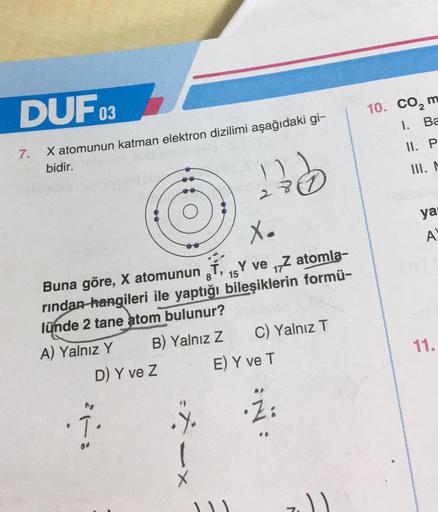 DUF 03
7. X atomunun katman elektron dizilimi aşağıdaki gi-
bidir.
2 8 1
X.
Buna göre, X atomunun ₈T, ₁₅Y ve ₁₇Z atomla-
rından hangileri ile yaptığı bileşiklerin formü-
lünde 2 tane atom bulunur?
A) Yalnız Y B) Yalnız Z C) Yalnız T
D) Y ve Z E) Y ve T
T Y Z
X
10. CO₂ m
I. Ba
II. P
III.
ya
A)
11.